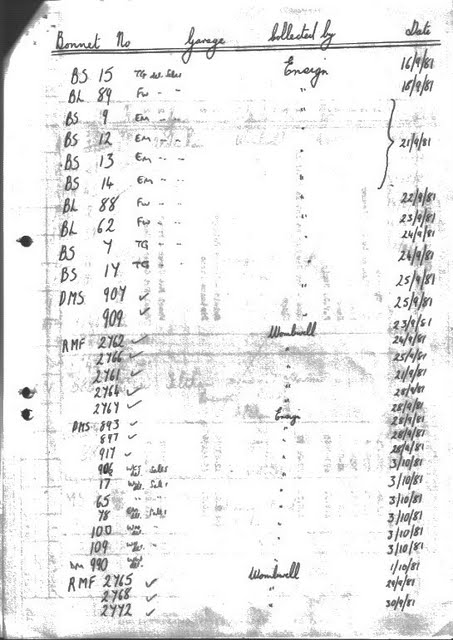 Bonnet No Garage Collected by Date
BS 15 TG del. Sales Ensign 16/9/81
BL 89 FW " " " 18/9/81
BS 9 EM " " "
BS 12 EM " " " 21/9/81
BS 13 EM " " "
BS 14 EM " " "
BL 88 FW " " " 22/9/81
BL 62 FW " " " 23/9/81
BS 7 TG " " " 24/9/81
BS 17 TG " " " 24/9/81
DMS 907 ✓ " 25/9/81
909 ✓ " 25/9/81
RMF 2762 ✓ Wombwell 23/9/81
2766 ✓ " 24/9/81
2761 ✓ " 25/9/81
2764 ✓ " 21/9/81
2767 ✓ " 28/9/81
DMS 893 ✓ Ensign 28/9/81
897 ✓ " 28/9/81
917 ✓ " 28/9/81
906 del. Sales " 3/10/81
17 del. Sales " 3/10/81
65 " " " 3/10/81
78 del. Sales " 3/10/81
100 del. " 3/10/81
109 del. " 3/10/81
990 del. " 1/10/81
RMF 2765 ✓ Wombwell 29/9/81
2768 ✓ "
2772 ✓ " 30/9/81